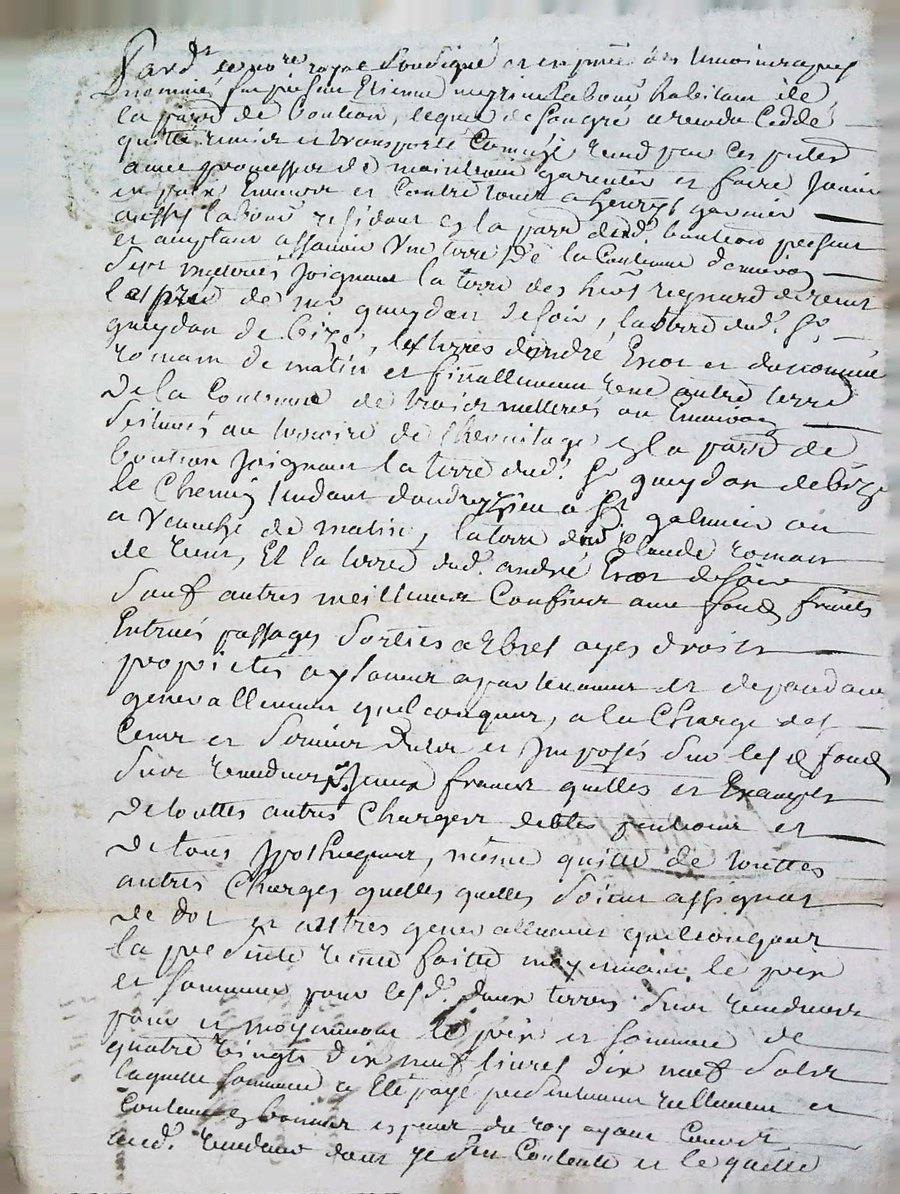 Pard.t le no.re royal Soubsigné et en pñce des temoins apres
nommés fut présent Etienne
la parr.e de Bouteon, lequel de son gre a vendu Cedde
quitté remis et transporté Comme vend par ces pñtes
avec promesse de maintenir garentir et faire Jouir
en paix Envers et Contre tous a Garnier
aussy labour.r residant en la parr.e dud.t bouteon present
et acceptant assavoir Une terre de la Contenue d'environ
deux metterées Joignant la terre des hoirs reynard de vent
le pred de m.r gueydan de soir, la terre dud.t S.r
gueydan de bize, les terres d'andré et du nommé
romain de matin et finallement Une autre terre
de la Contenue de trois metterées ou Environ
scituées au terroire de l'hermitage en la parr.e de
bouteon Joignant la terre dud.t S.r gueydan de bize
le Chemin tendant d'andrezieu a S.t galmier ou
a Veauche de matin, la terre de Claude romain
de vent, Et la terre dud.t andré de soir
Sauf autres meilleurs Confins avec fonds fruits
Entrées passages Sorties arbres ayes droits
propriétés aysances apartenances et dependances
generallement quelconques, a la Charge des
Cens et Servis deubs et Imposés sur lesd. fonds
Sus vendus francs quittes et Exempts
de touttes autres Charges debtes pentions et
de tous ypothecques, même quitte de touttes
autres Charges quelles quelles soient assignat
de dot et autres generallement quelconques
la presente vente faitte moyennant le prix
et somme pour lesd. deux terres sus vendues
pour et moyennant le prix et somme de
quatre vingts dix neuf livres dix neuf sols
laquelle somme a Eté payé presentement reellement et
Contant en bonnes especes du roy ayant Cours
aud.t vendeur dont Je s'en Contente et le quitte